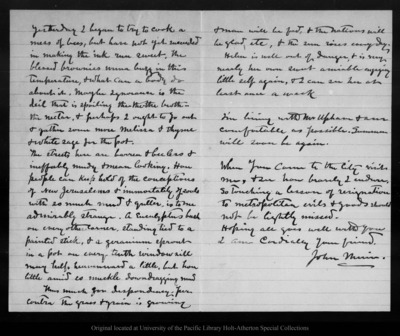 Yesterday I began to try to cook a
mess of bees, but have not yet succeeded
in making the ink run sweet, the
blessed brownies winna buzz in this
temperature, & what can a body do
about it. Maybe ignorance is the
deil that is spoiling the
the nectar, & perhaps I ought to go out
& gather some more Melissa & thyme
& white sage for the pot.
The streets here are barren & beeless &
ineffably muddy & mean looking. How
people can keep hold of the conceptions
of New Jerusalems & immortality of souls
with so much mud & gutter, is to me
admirably strange. A Eucalyptus bush
on every other corner, standing tied to a
painted stick, & a geranium sprout
in a pot on every tenth window sill
may help heavenward a little, but how
little amid so muckle downdragging mud
This much for despondency; per
contra the grass & grain is growing
& man will be fed, & the nations will
be glad, etc., & the sun rises every day.
Helen is well out of danger, & is very
nearly her own sweet amiable engaging
little self again, & I can see her at
least once a week
I'm living with Mr Upham & am
comfortable as possible. Summer
will soon be again.
When you come to the city visit
me, & see how bravely I endure
so touching a lesson of resignation
to metropolitan evils & goods should
not be lightly missed.
Hoping all goes well with you
I am Cordially your friend.
John Muir.
Original located at University of the Pacific Library Holt-Atherton Special Collections